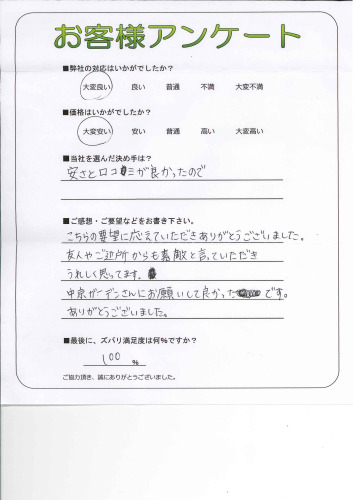 お客様アンケート
■弊社の対応はいかがでしたか？
大変良い 良い 普通 不満 大変不満
■価格はいかがでしたか？
大変安い 安い 普通 高い 大変高い
■当社を選んだ決め手は？
安さと口コミが良かったので
■ご感想・ご要望などをお書き下さい。
こちらの要望に応えていただきありがとうございました。
友人やご近所からも素敵と言っていただき
うれしく思ってます。
中京ガーデンさんにお願いして良かったです。
ありがとうございました。
■最後に、ズバリ満足度は何%ですか？
100 %
ご協力頂き、誠にありがとうございました。